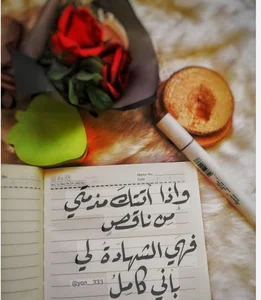 وإذا أتتك مذمتي
من ناقص
فهي الشهادة لي
بأني كامل
@yon__333